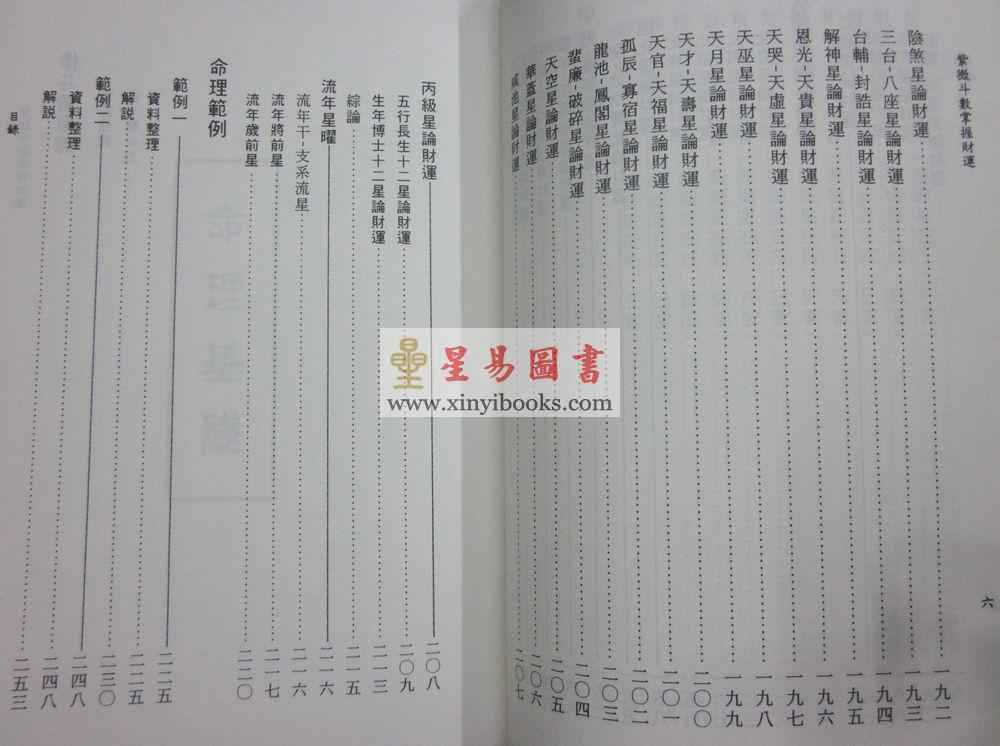 紫微斗數掌握財運
陰煞星論財運 一九二
三台-八座星論財運 一九三
台輔-封誥星論財運 一九四
解神星論財運 一九五
恩光-天貴星論財運 一九六
天哭-天虛星論財運 一九七
天巫星論財運 一九八
天月星論財運 一九九
天才-天壽星論財運 二〇〇
天官-天福星論財運 二〇一
孤辰-寡宿星論財運 二〇二
龍池-鳳閣星論財運 二〇三
蜚廉-破碎星論財運 二〇四
天空星論財運 二〇五
華蓋星論財運 二〇六
咸池星論財運 二〇七
六
丙級星論財運 二〇八
五行長生十二星論財運 二〇九
生年博士十二星論財運 二一三
綜論 二一五
流年星曜 二一六
流年干-支系流星 二一六
流年將前星 二一七
流年歲前星 二二〇
命理範例
範例一 二二五
資料整理 二二五
解說 二三〇
範例二 二四八
資料整理 二四八
解說 二五三
目錄
命理基礎
星易圖書
www.xinyibooks.com